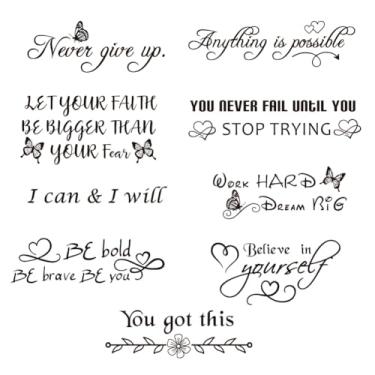 Never give up.
Anything is possible
LET YOUR FAITH
BE BIGGER THAN
YOUR Fear
YOU NEVER FAIL UNTIL YOU
STOP TRYING
I can & I will
WORK HARD
DREAM BIG
BE bold
BE brave BE you
Believe in
yourself
You got this